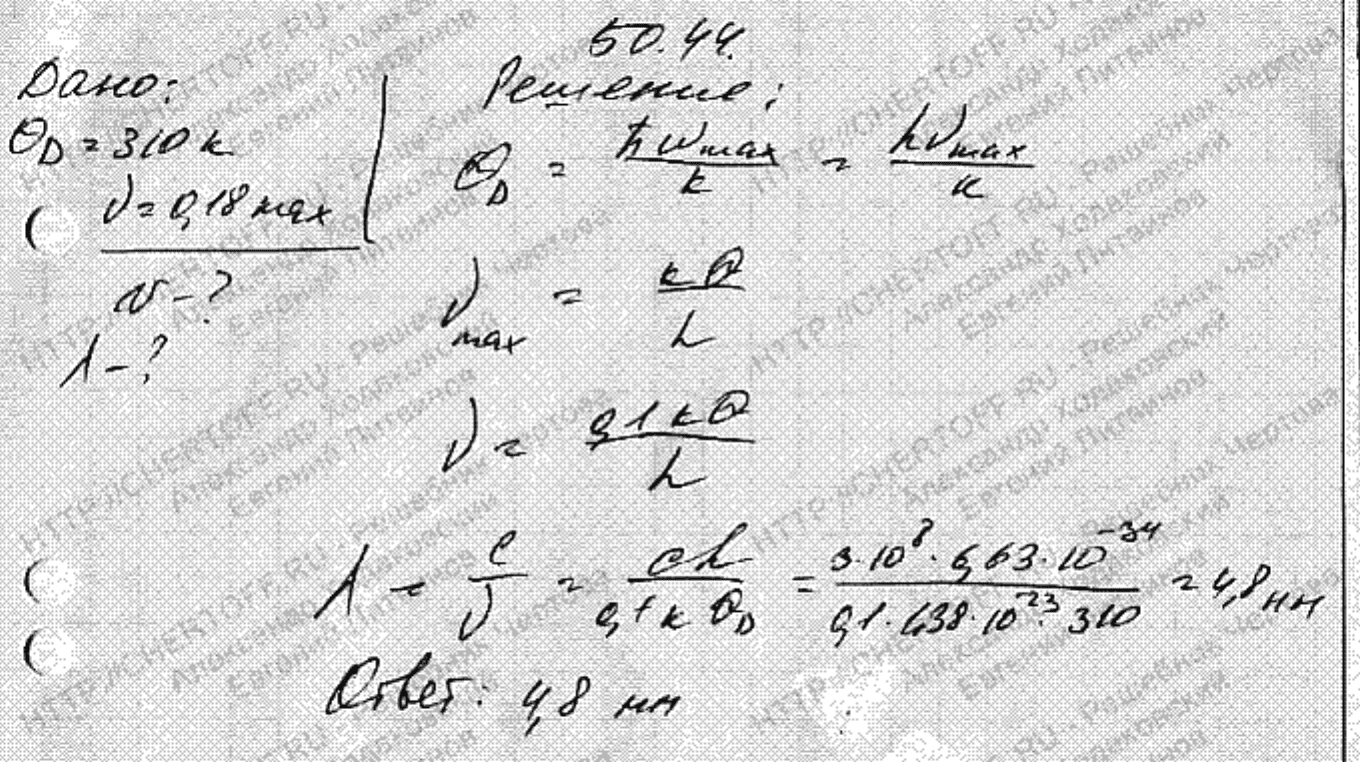 50.44.
Дано:
Решение:
Θ_D = 310 К
Θ_D = ħω_max / k = hν_max / k
ν = 0,1 ν_max
v - ?
λ - ?
ν_max = kΘ / h
ν = 0,1 kΘ / h
λ = c / ν = ch / 0,1 k Θ_D = 3·10^8 · 6,63·10^-34 / 0,1 · 1,38·10^-23 · 310 = 4,8 нм
Ответ: 4,8 нм
HTTP://CHERTOFF.RU - Решебник Чертова
Александр Ходаковский
Евгений Литвинов